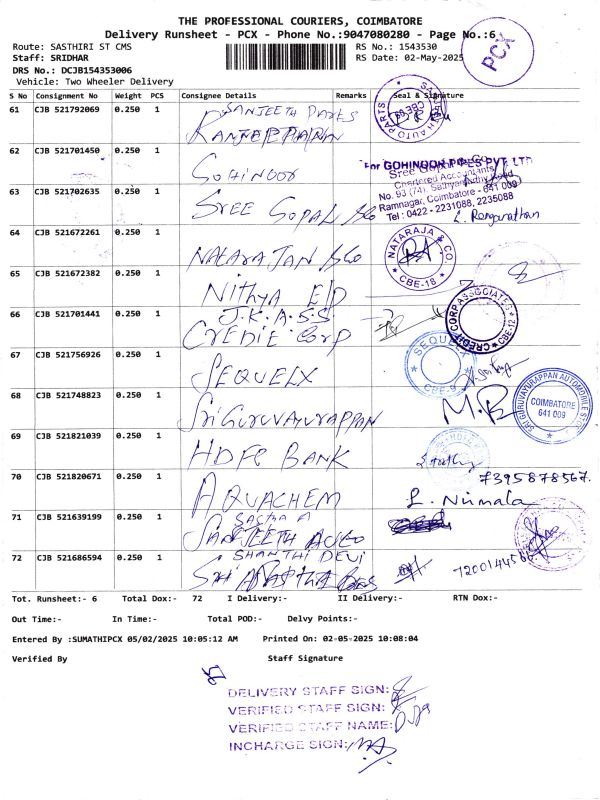 THE PROFESSIONAL COURIERS, COIMBATORE
Delivery Runsheet - PCX - Phone No.:9047080280 - Page No.:6
PCX
Route: SASTHIRI ST CMS
RS No.: 1543530
Staff: SRIDHAR
RS Date: 02-May-2025
DRS No.: DCJB154353006
Vehicle: Two Wheeler Delivery
S No Consignment No Weight PCS Consignee Details Remarks Seal & Signature
61 CJB 521792069 0.250 1 SANJEETH PARTS
62 CJB 521701450 0.250 1 GOHINOOR
For GOHINOOR PIPES PVT LTD
Sree Gopal & Co
Chartered Accountants
No. 93 (74), Sathyamurthy Road
Ramnagar, Coimbatore - 641 009
Tel : 0422 - 2231088, 2235088
63 CJB 521702635 0.250 1 SREE GOPAL &CO
L. Renganathan
64 CJB 521672261 0.250 1 NATARAJAN &CO
NATARAJA & CO. CBE-18
65 CJB 521672382 0.250 1 Nithya E/D
66 CJB 521701441 0.250 1 J.K.A.S.S
CREDIE Corp
CREDIT CORP ASSOCIATES CBE-12
67 CJB 521756926 0.250 1 SEQUELX
SEQUELX CBE-9
68 CJB 521748823 0.250 1 SRi GURUVAYURAPPAN
SRI GURUVAYURAPPAN AUTOMOBILES COIMBATORE 641 009
69 CJB 521821039 0.250 1 HDFC BANK
7395878567.
70 CJB 521820671 0.250 1 AQUACHEM
L. Nirmala
71 CJB 521639199 0.250 1
SANJEETH AUTO
72 CJB 521686594 0.250 1 SHANTHI DEVI
Tot. Runsheet:- 6 Total Dox:- 72 I Delivery:- II Delivery:- RTN Dox:-
Out Time:- In Time:- Total POD:- Delvy Points:-
Entered By :SUMATHIPCX 05/02/2025 10:05:12 AM Printed On: 02-05-2025 10:08:04
Verified By Staff Signature
DELIVERY STAFF SIGN:
VERIFIED STAFF SIGN:
VERIFIED STAFF NAME:
INCHARGE SIGN: